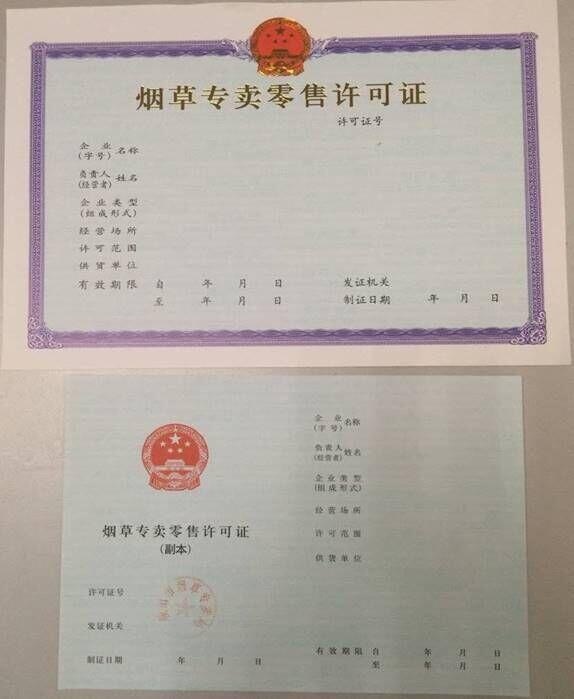 烟草专卖零售许可证
许可证号
企业(字号)名称
负责人(经营者)姓名
企业类型(组成形式)
经营场所
许可范围
供货单位
有效期限 自 年 月 日 发证机关
至 年 月 日 制证日期 年 月 日
烟草专卖零售许可证
(副本)
许可证号
发证机关
制证日期 年 月 日
企业(字号)名称
负责人(经营者)姓名
企业类型(组成形式)
经营场所
许可范围
供货单位
有效期限 自 年 月 日
至 年 月 日